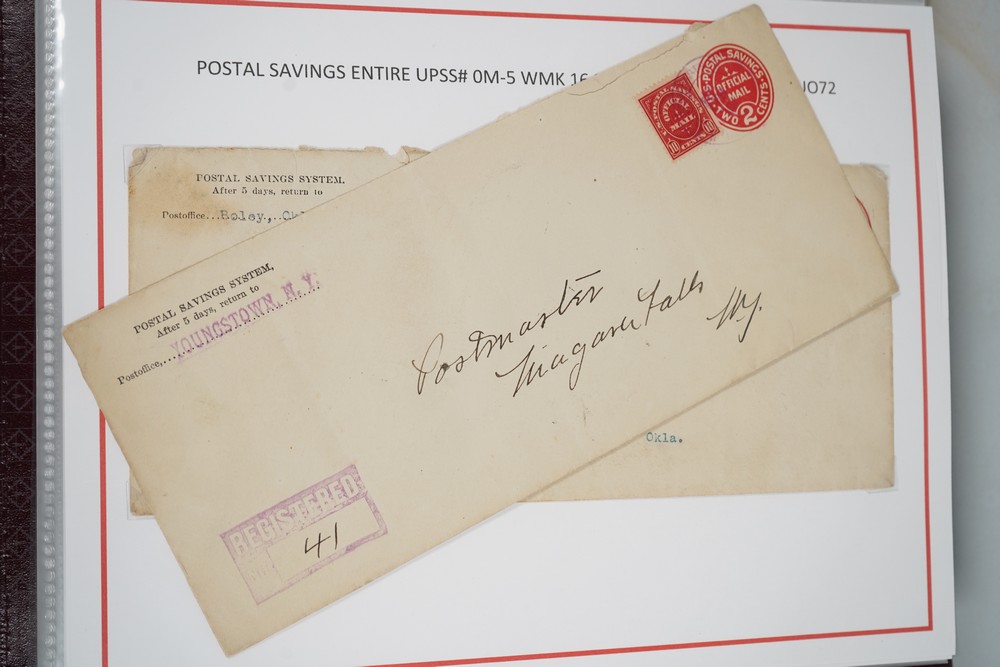 POSTAL SAVINGS ENTIRE UPSS# 0M-5 WMK 16
UO72
POSTAL SAVINGS SYSTEM.
After 5 days, return to
Postoffice...Boley, Okl
POSTAL SAVINGS SYSTEM.
After 5 days, return to
Postoffice, YOUNGSTOWN, N. Y.
U.S. POSTAL SAVINGS
OFFICIAL
MAIL
10 CENTS 10
U.S. POSTAL SAVINGS
OFFICIAL
MAIL
TWO 2 CENTS
Postmaster
Niagara Falls
NY.
Okla.
REGISTERED
41